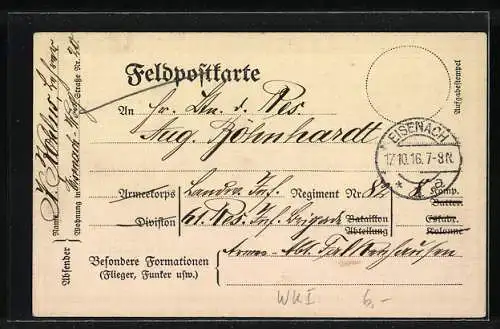 Feldpostkarte
Aufgabestempel
An Hr. Ltn. d. Res.
Aug. Böhnhardt
EISENACH
17.10.16. 7-8 N.
* a
Armeekorps Landw. Inf. Regiment Nr. 82 Komp.
Batterie
Division 61. Res. Inf. Brigade Bataillon Eskadr.
Abteilung Kolonne
Armee-Abt. Falkenhausen
Besondere Formationen
(Flieger, Funker usw.)
Absender
Name
Wohnung Eisenach Straße Nr. 20
WK I 6,-